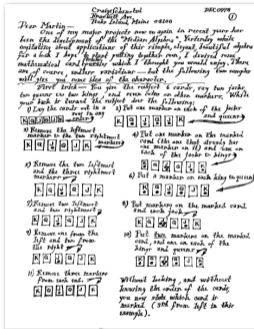 DEC 1978
①
Dear Martin —
One of my major projects now and again in recent years has
been the development of the
Yesterday while
applications of their simple, elegant, beautiful system
for a book I hope to start putting together soon, I devised some
mathematical card puzzles which I thought you would enjoy. There
are of course, endless variations — but the following two samples
will give you some idea of the operation.
First trick — You give the subject 6 cards, any two jacks,
two queens and two kings and some coins or other markers. With
your back turned the subject does the following:
1) Lay the cards out in a row in any order
2) Put one marker on each of the jacks and queens
3) Remove the leftmost marker and the two rightmost markers
4) Put one marker on the marked card (the one that already has one marker on it) and one on each of the jacks or kings
5) Remove the two leftmost and the three rightmost markers
6) Put a marker on each king and queen
7) Remove two leftmost and two rightmost
8) Put markers on the marked card and each jack
9) Remove one from the left and two from the right
10) Put two markers on the marked card, and one on each of the kings and queens
11) Remove three markers from each end.
Without looking, and without
knowing the order of the cards,
you now state which card is
marked (3rd from left in this
example).